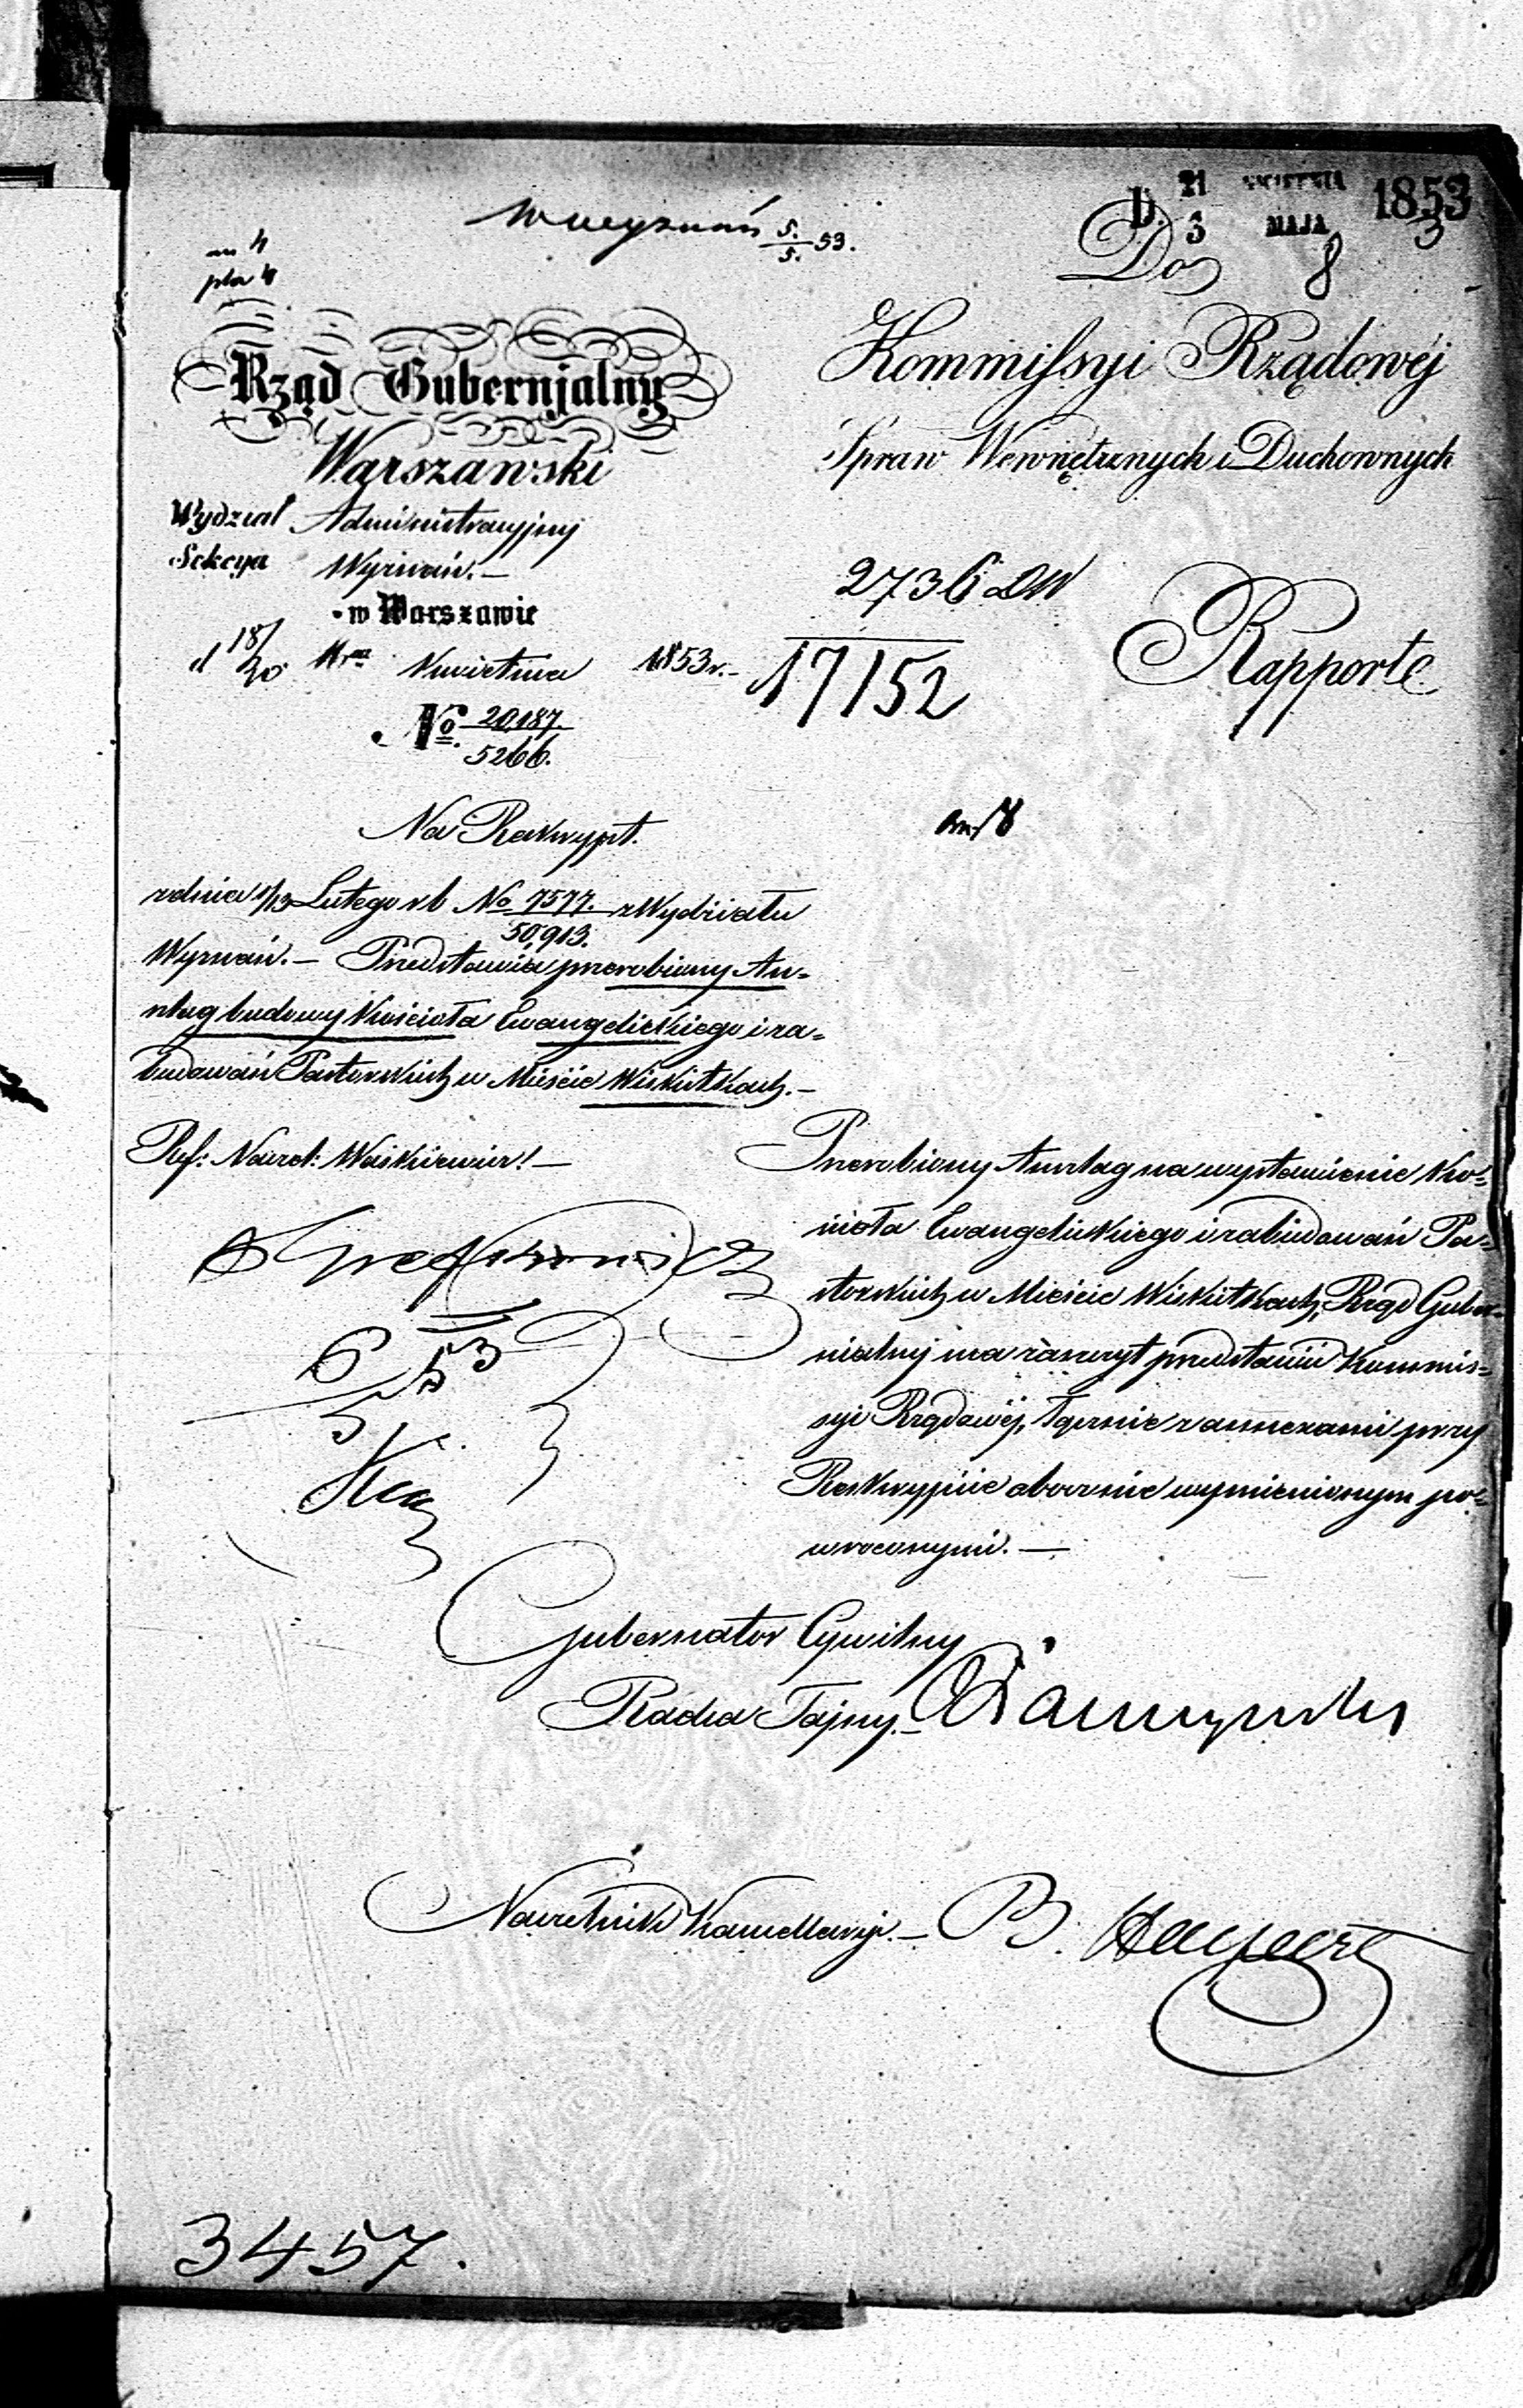 D. 21 KWIETNIA 1853
3 MAJA 3
Wyznań 5./5. 53.
an 4
pta 4
Do 8
Rząd Gubernjalny
Warszawski
Wydział Administracyjny
Sekcya Wyznań.—
w Warszawie
d 18/30 Mca Kwietnia 1853 r.—
No. 20,187./5266.
Kommissyi Rządowéj
Spraw Wewnętrznych i Duchownych
2736 DW
17152
Rapporte
Na Reskrypt.
z dnia 1/13 Lutego r b No 7577./50,913. z Wydziału
Wyznań.— Przedstawia przerobiony An=
szlag budowy Kościoła Ewangelickiego i za=
budowań Pastorskich w Mieście Wiskitkach.—
Ref: Naczel: Waśkiewicz!—
Przerobiony Anszlag na wystawienie Ko=
ścioła Ewangelickiego i zabudowań Pa=
storskich w Mieście Wiskitkach, Rząd Guber=
nialny ma zaszczyt przedstawić Kommis=
syi Rządowéj, łącznie z annexami przy
Reskrypcie obocznie wymienionym po=
wróconymi.—
6/5 53
Gubernator Cywilny
Radca Tajny.—
Naczelnik Kancellaryi.— B.
3457.